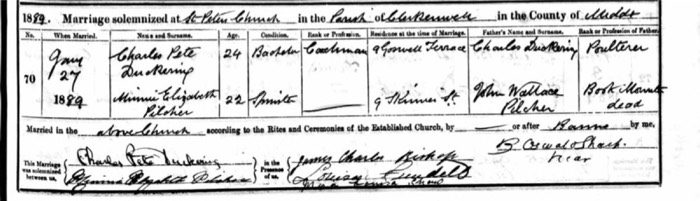 1889. Marriage solemnized at St Peters Church in the Parish of Clerkenwell in the County of Middx
No. When Married. Name and Surname. Age. Condition. Rank or Profession. Residence at the time of Marriage. Father's Name and Surname. Rank or Profession of Father.
70 Jany 27 1889 Charles Pete Duckering 24 Bachelor Coachman 9 Goswell Terrace Charles Duckering Poulterer
Minnie Elizabeth Pilcher 22 Spinster 9 Skinner St. John Wallace Pilcher Book dead
Married in the above Church according to the Rites and Ceremonies of the Established Church, by or after Banns by me,
This Marriage was solemnized between us, Charles Pete Duckering in the Presence of us, James Charles Bishop B. Oswald Sharp.
Minnie Elizabeth Pilcher Louisa Vicar